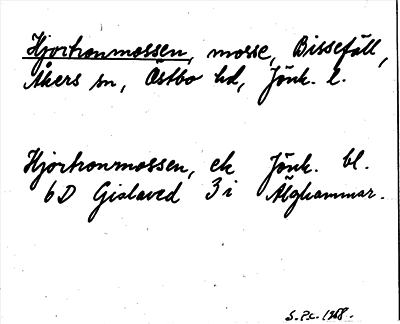 Hjortronmossen, mosse, Bissefäll,
Åkers sn, Östbo hd, Jönk. l.
Hjortronmossen, ek Jönk. bl.
6D Gislaved 3i Älghammar.
S.Pc. 1968.